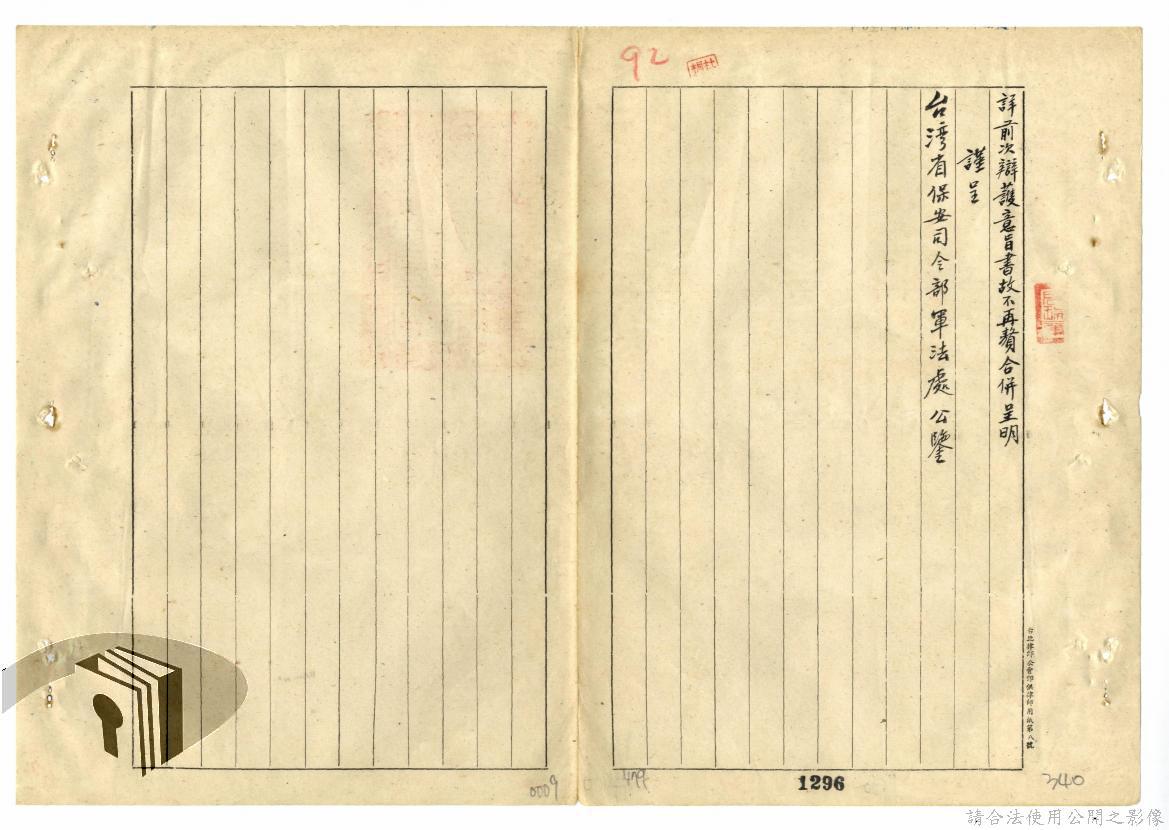 92
詳前次辯護意旨書故不再贅合併呈明
謹呈
台湾省保安司令部軍法處 公鑒
台北律師公會印供律師用紙第八號
0009
479
1296
340
請合法使用公開之影像